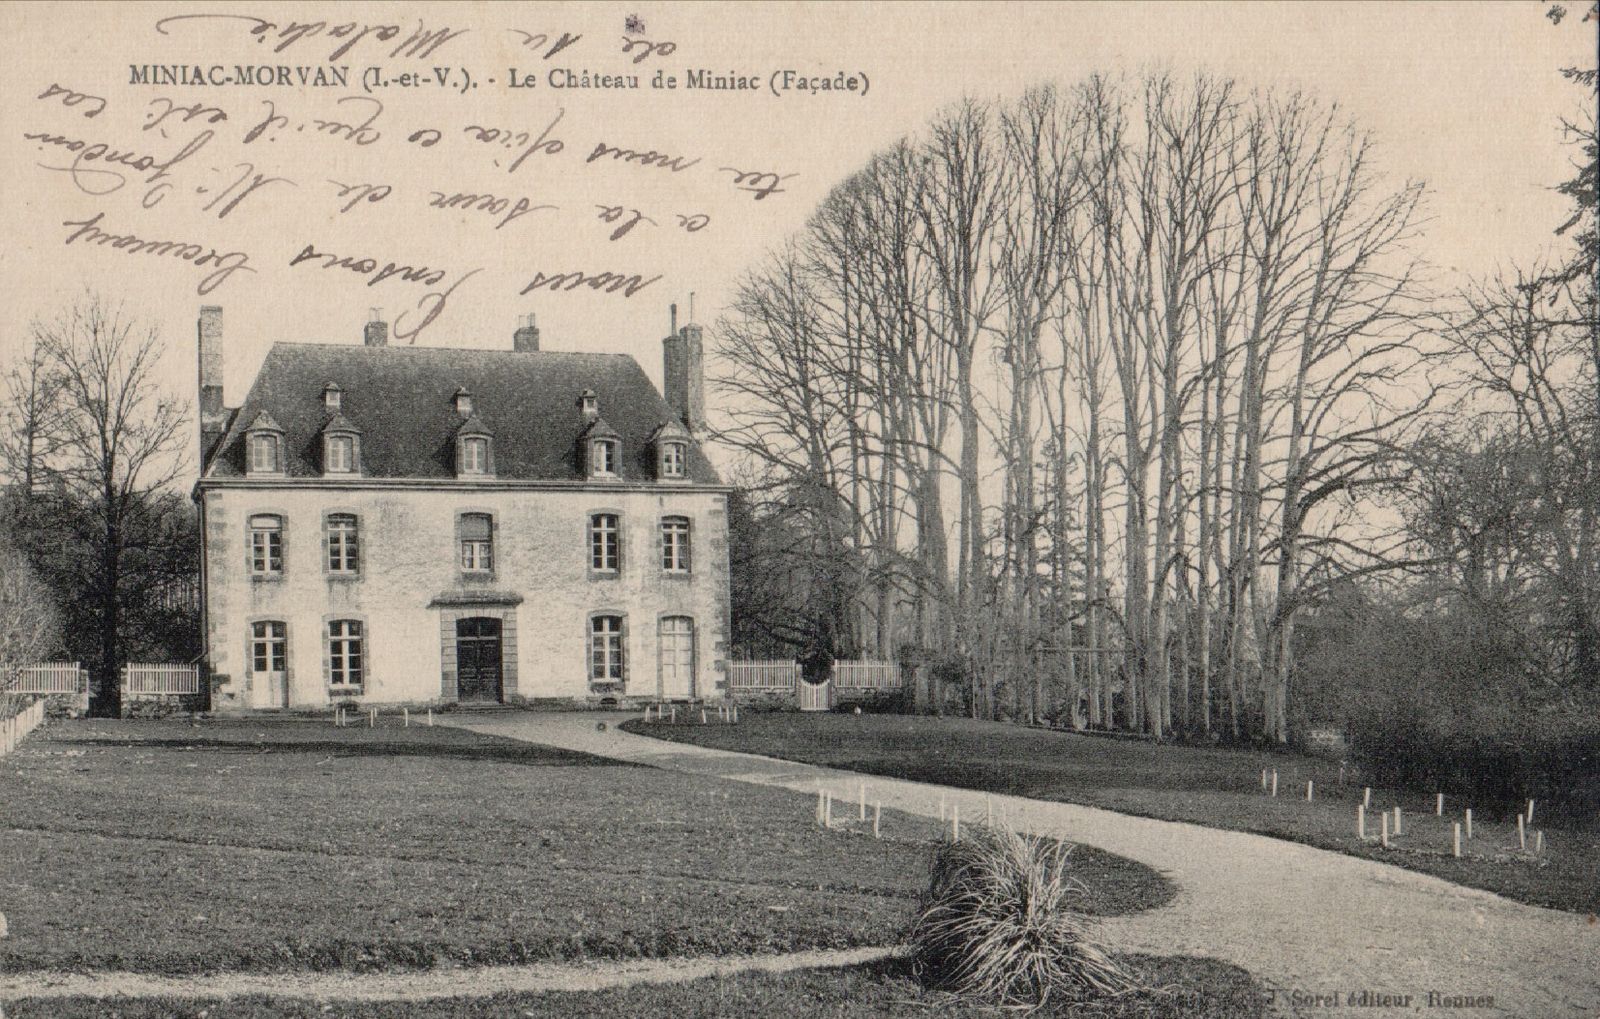 MINIAC-MORVAN (I.-et-V.). - Le Château de Miniac (Façade)
nous pensons beaucoup
a la sœur de Mr Jondain
tu nous dira ce qu'il est cas
de sa Maladie
J. Sorel éditeur Rennes